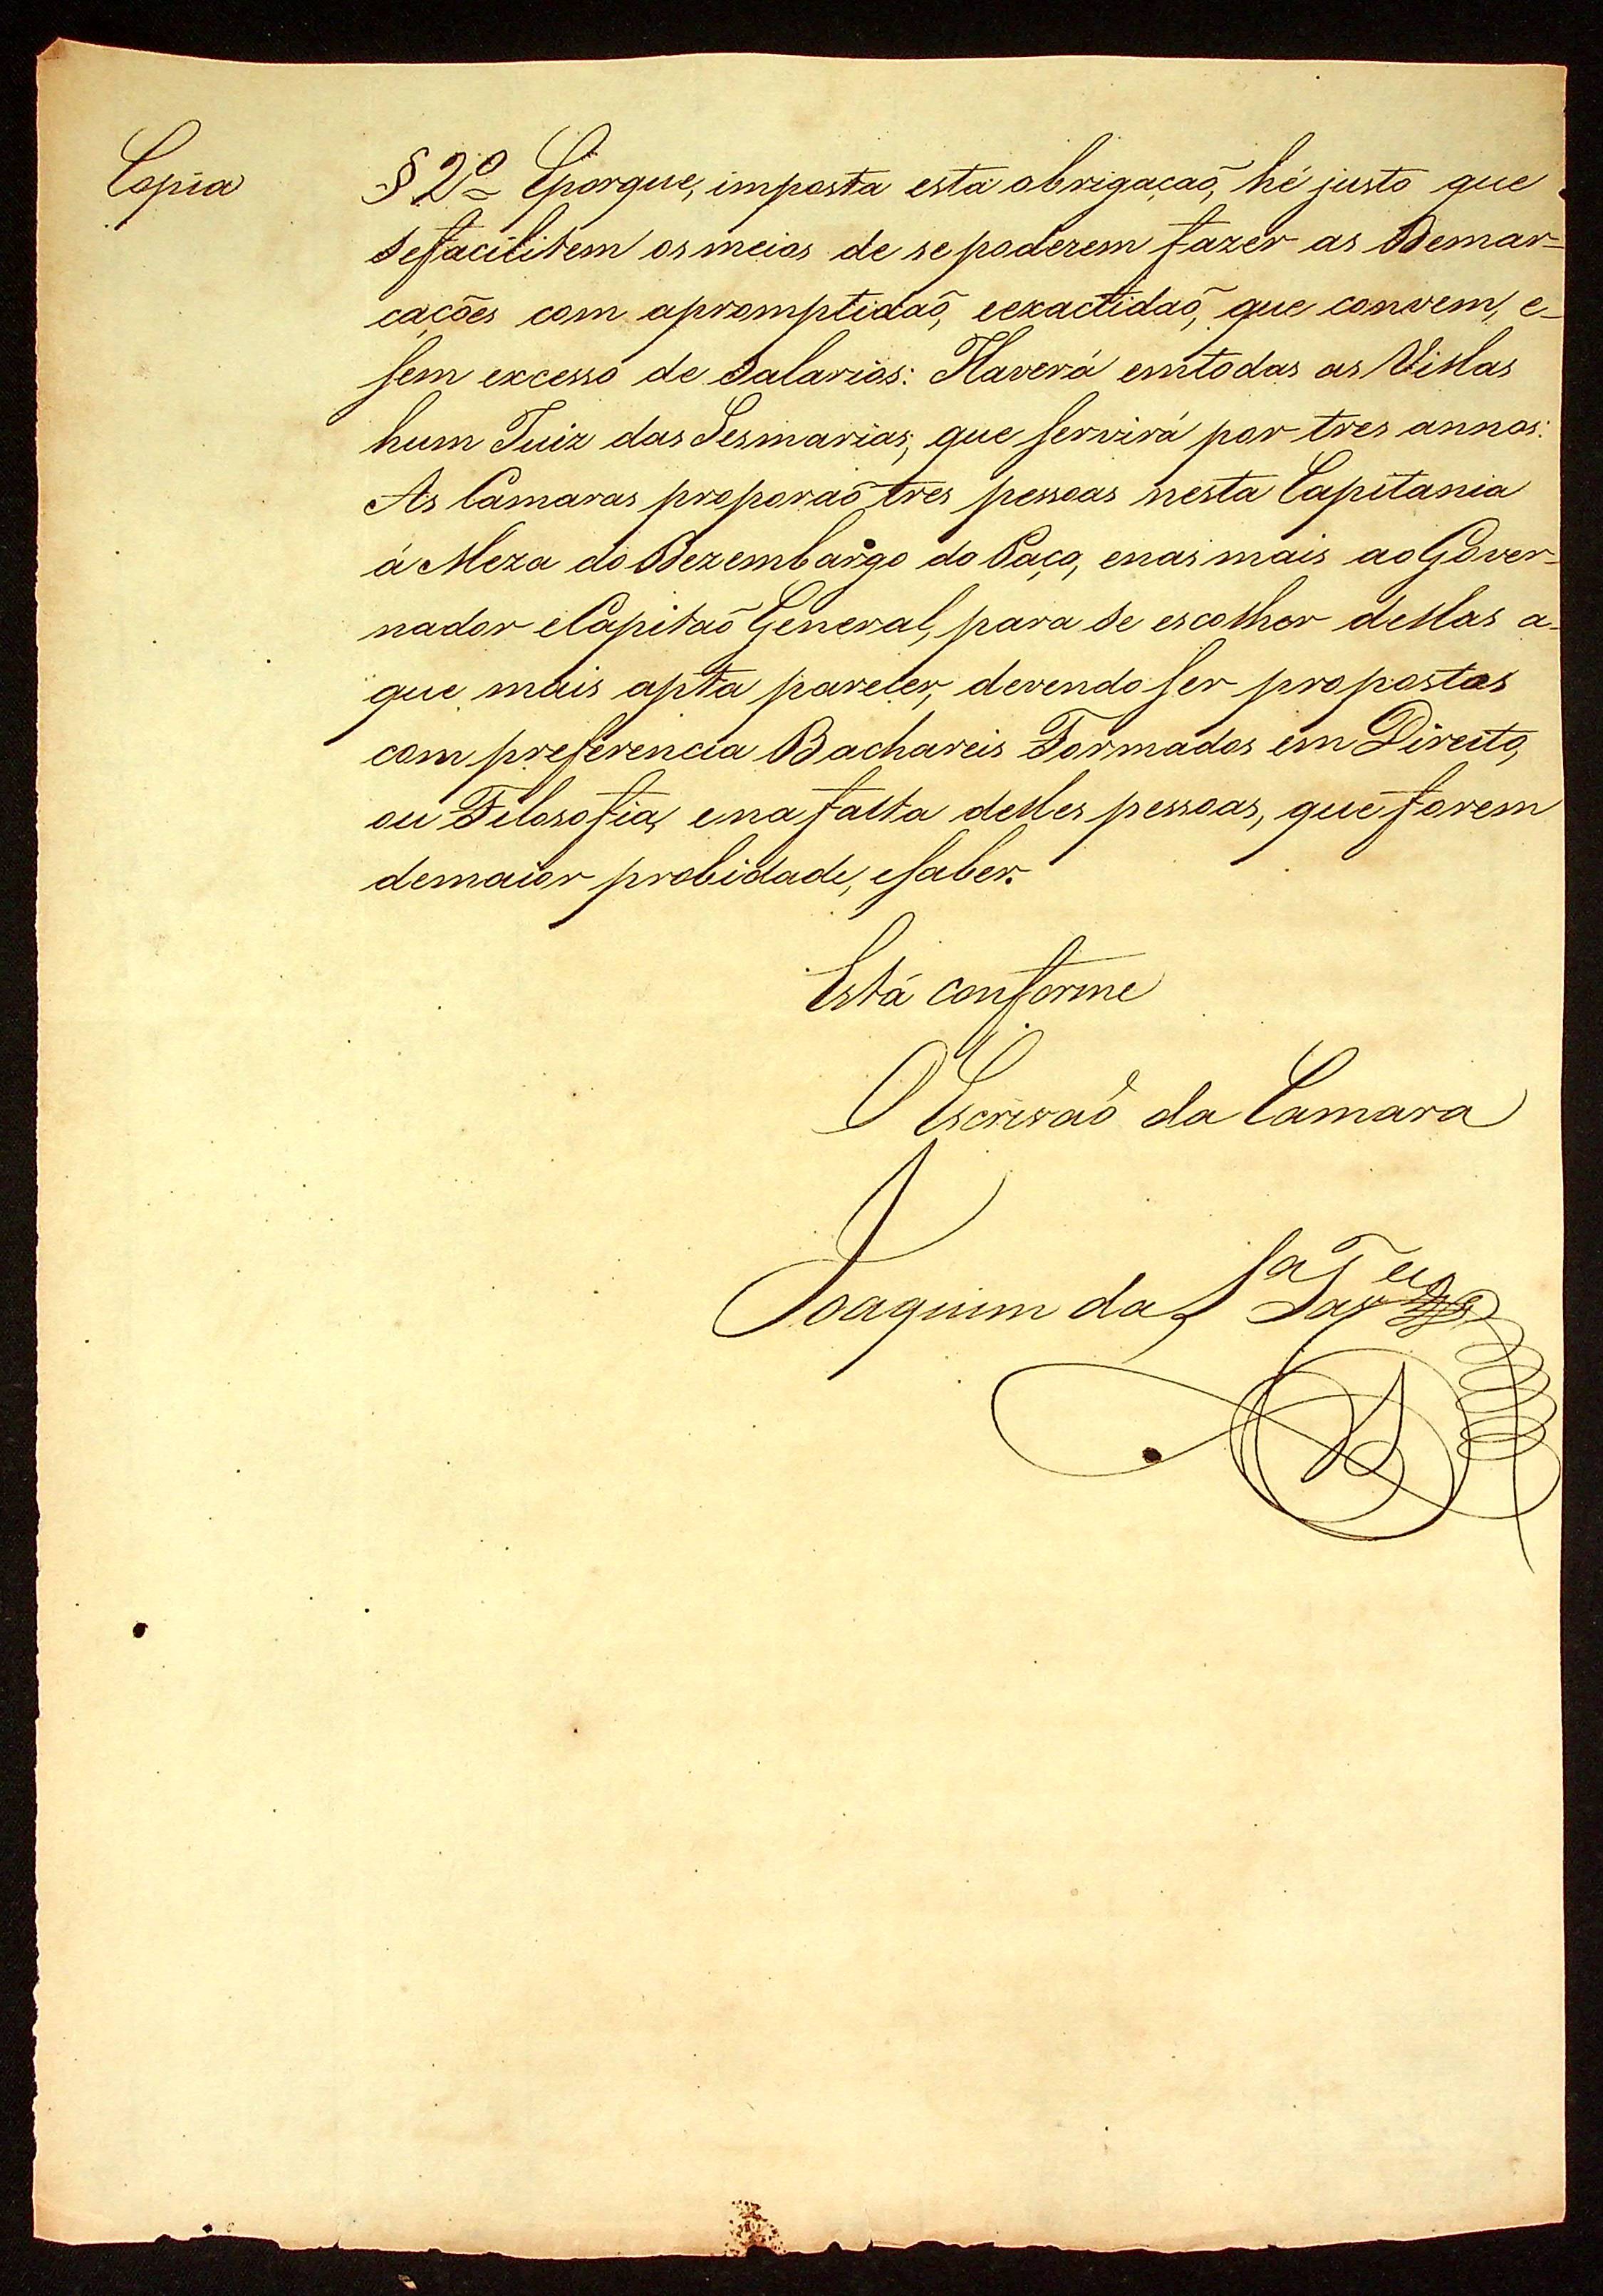 Copia
§ 2º Eporque, imposta esta obrigaçaõ, hé justo que
sefacilitem os meios de se poderem fazer as Demar=
cações com apromptidaõ, eexactidaõ, que convem, e
sem excesso de Salarios: Haverá emtodas as Villas
hum Juiz das Sesmarias, que servirá por tres annos:
As Camaras proporaõ tres pessoas nesta Capitania
á Meza do Dezembargo do Paço, enas mais ao Gover-
nador eCapitaõ General, para se escolher dellas a
que mais apta parecer, devendo ser propostas
com preferencia Bachareis Formados em Direito,
ou Filosofia, enafalta delles pessoas, que forem
demaior probidade, esaber.
Está conforme
O Escrivaõ da Camara
Joaquim da Sª